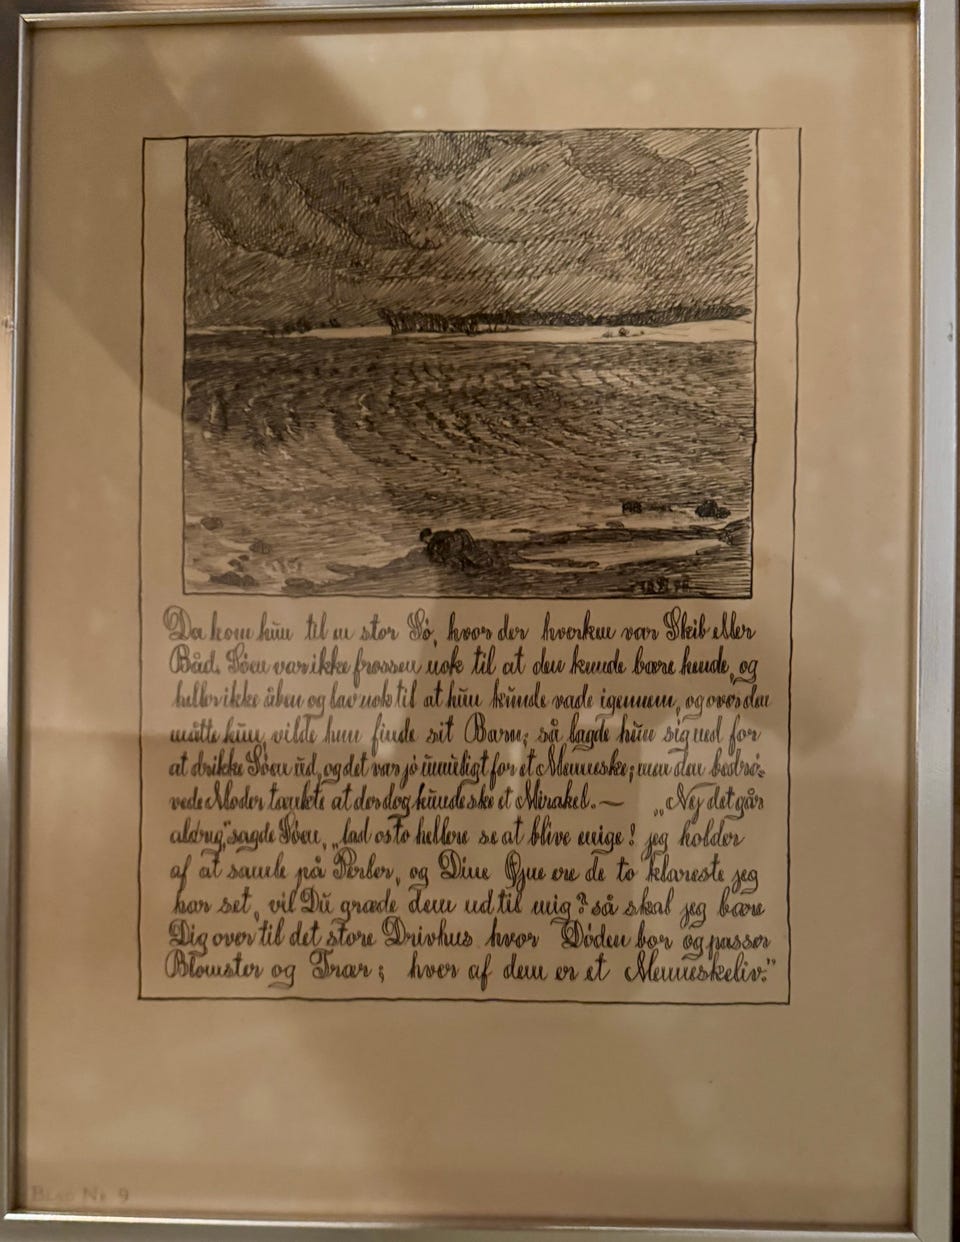 Da kom hun til en stor Sø, hvor der hverken var Skib eller
Båd. Søen var ikke frossen nok til at den kunde bære hende, og
heller ikke åben og lav nok til at hun kunde vade igennem, og over den
måtte hun, vilde hun finde sit Barn; så lagde hun sig ned for
at drikke Søen ud, og det var jo umuligt for et Menneske; men den bedrø-
vede Moder tænkte at der dog kunde ske et Mirakel. — „Nej det går
aldrig," sagde Søen, „lad os to hellere se at blive enige! jeg holder
af at samle på Perler, og Dine Øjne ere de to klareste jeg
har set, vil Du græde dem ud til mig? så skal jeg bære
Dig over til det store Drivhus hvor Døden bor og passer
Blomster og Træer; hver af dem er et Menneskeliv."
Blad Nr 9